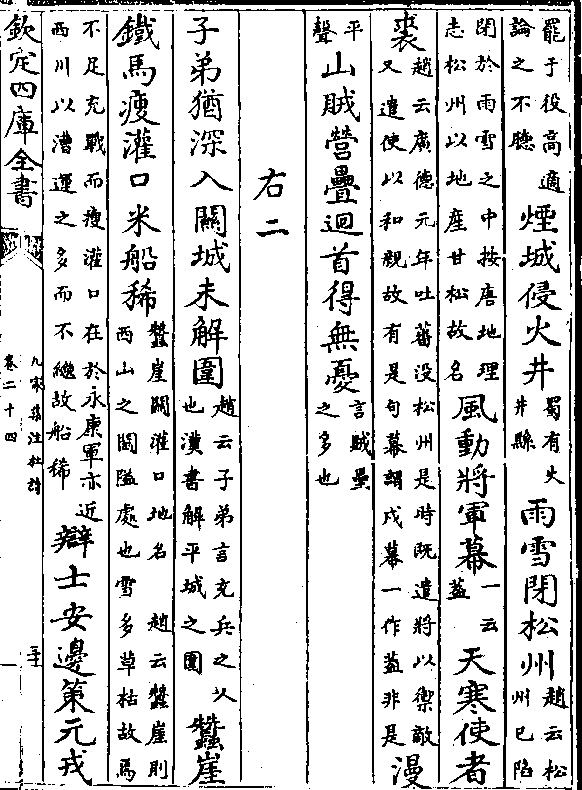 罷于役高適
論之不聽
煙城侵火井
蜀有火
井縣
雨雪閉松州
趙云松
州已陷
閉於雨雪之中按唐地理
志松州以地産甘松故名
風動將軍幕
一云
蓋
天寒使者
裘
趙云廣德元年吐蕃没松州是時既遣將以禦敵
又遣使以和親故有是句幕謂戍幕一作蓋非是
漫
平
聲
山賊營壘迴首得無憂
言賊壘
之多也
右二
子弟猶深入關城未解圍
趙云子弟言充兵之人
也漢書解平城之圍
蠶崖
鐵馬瘦灌口米船稀
蠶崖關灌口地名 趙云蠶崖則
西山之關隘處也雪多草枯故馬
不足充戰而瘦灌口在於永康軍亦近
西川以漕運之多而不繼故船稀
辯士安邊策元戎
欽定四庫全書
九家集注杜詩
卷二十四